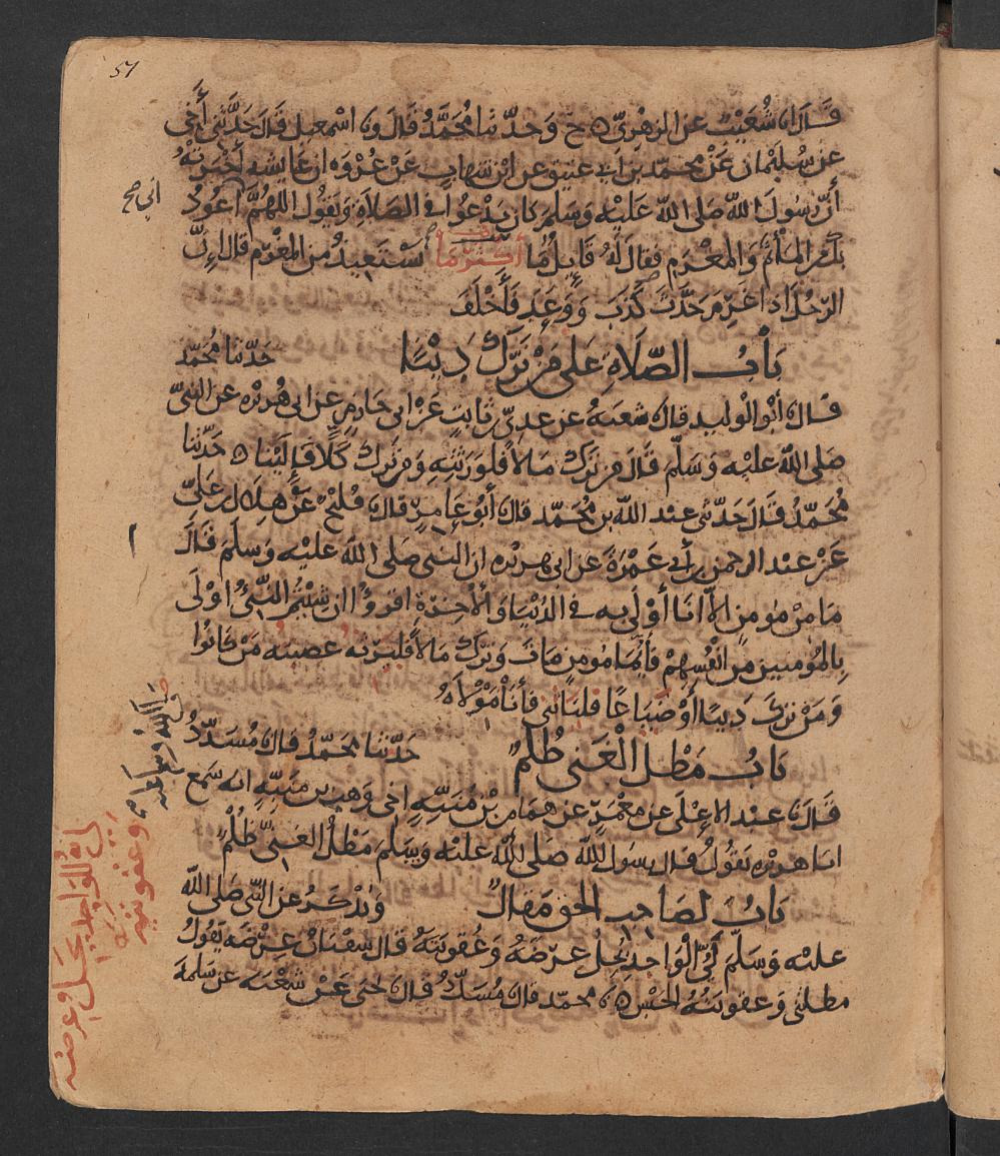 57
قَالَ انا شُعَيْبٌ عن الزهْرِيّ ه ح وَحدّثنا مُحَمَّدٌ قَالَ ونا اسْمعيل قال حَدَّثَنِي أَخِي
عن سُلَيْمان عَنْ محمّد بن ابي عتيق عن ابْنِ شهابٍ عَنْ عُرْوَه ان عَايشه أَخْبَرَتْهُ
أنَّ رَسُولَ اللَّه صَلى اللَّه عَلَيْه وَسَلم كان يَدْعُوا في الصَلَاةِ وَيَقُول اللهُمَّ اعُوذُ
بك من المَأْثَم وَالمَغْرَم فقال لَهُ قَايلٌ مَّا أَكثَرَ مَا تَسْتَعِيذُ من المغْرَم قال إِنَّ
الرّجُلَ اذا غرِمَ حَدَّثَ كَذَبَ وَوَعَدَ فَأَخْلَفَ
بَابُ الصَّلَاةِ عَلَى مَنْ تَرَكَ دَيْنًا حَدّثنا مُحَمّد
قَالَ نا أَبُو الْوَليد قال نا شعبَةُ عن عديّ بن ثابتٍ عَنْ ابي حَازِمٍ عن ابي هُرَيْره عن النبيِّ
صَلى اللَّه عليْه وَسَلّم قَالَ مَن تَرَكَ مَالاً فلِوَرَثتِهِ وَمَن تَرَك كَلًّا فَإِلَيْنا ه حَدّثنا
مُحَمّدٌ قَالَ حَدّثني عبْد اللَّه بن مُحَمّد قال نا أَبُو عَامِرٍ قال نا فُلَيْحٌ عَنْ هِلَال بن عَليّ
عَنْ عبْد الرحمن بن أَبي عَمْرَةَ عن ابي هريْره ان النبي صَلى اللَّه عليْه وَسَلّمَ قَالَ
مَا مِنْ مُومنٍ الاَّ انَا أَوْلَى به في الدُّنيَا وَالْآخِرَةِ اقرءُوا ان شيْتُم النَّبيُّ اوْلَى
بِالمُومنينَ من انْفُسِهِمْ فَأَيُّمَا مُومنٍ مَاتَ وَتَرَكَ مَالاً فَليَرِثْهُ عصَبَتُه مَنْ كَانُوا
وَمَنْ تركَ دَيْنًا أَوْ ضَيَاعًا فليَأتني فأنَا مَوْلَاهُ
بَابُ مَطْلُ الْغَني ظُلْمٌ حَدّثنا محَمّدٌ قال نا مُسَدّدٌ
قَالَ نا عبْد الاعْلَى عن مَعْمَرٍ عن همّام بْن مُنَبِّهٍ اخي وَهب بن مُنَبِّهٍ انه سَمع
ابَا هريْره يَقُولُ قال رسُول اللَّه صَلى اللَّه عليْه وَسَلم مَطْلُ الغَنيِّ ظُلْمٌ
بَابُ لصَاحِبِ الحَق مَقَالٌ وَيُذْكَرُ عن النّبيّ صَلى اللَّه
عليْه وَسَلّمَ لَيُّ الْوَاجد يُحِلُّ عِرْضَهُ وَعُقُوبَتَهُ قال سفْيانُ عِرْضَه يَقُولُ
مطلْتني وَعقوبَتُهُ الحَبْس ه نا محمّد قال نا مُسَدّدٌ قال نا يحيى عَنْ شعْبَه عن سَلَمَة
صح
صلى الله عليه وسلم
لي الواجد يحل عرضه
وعقوبته